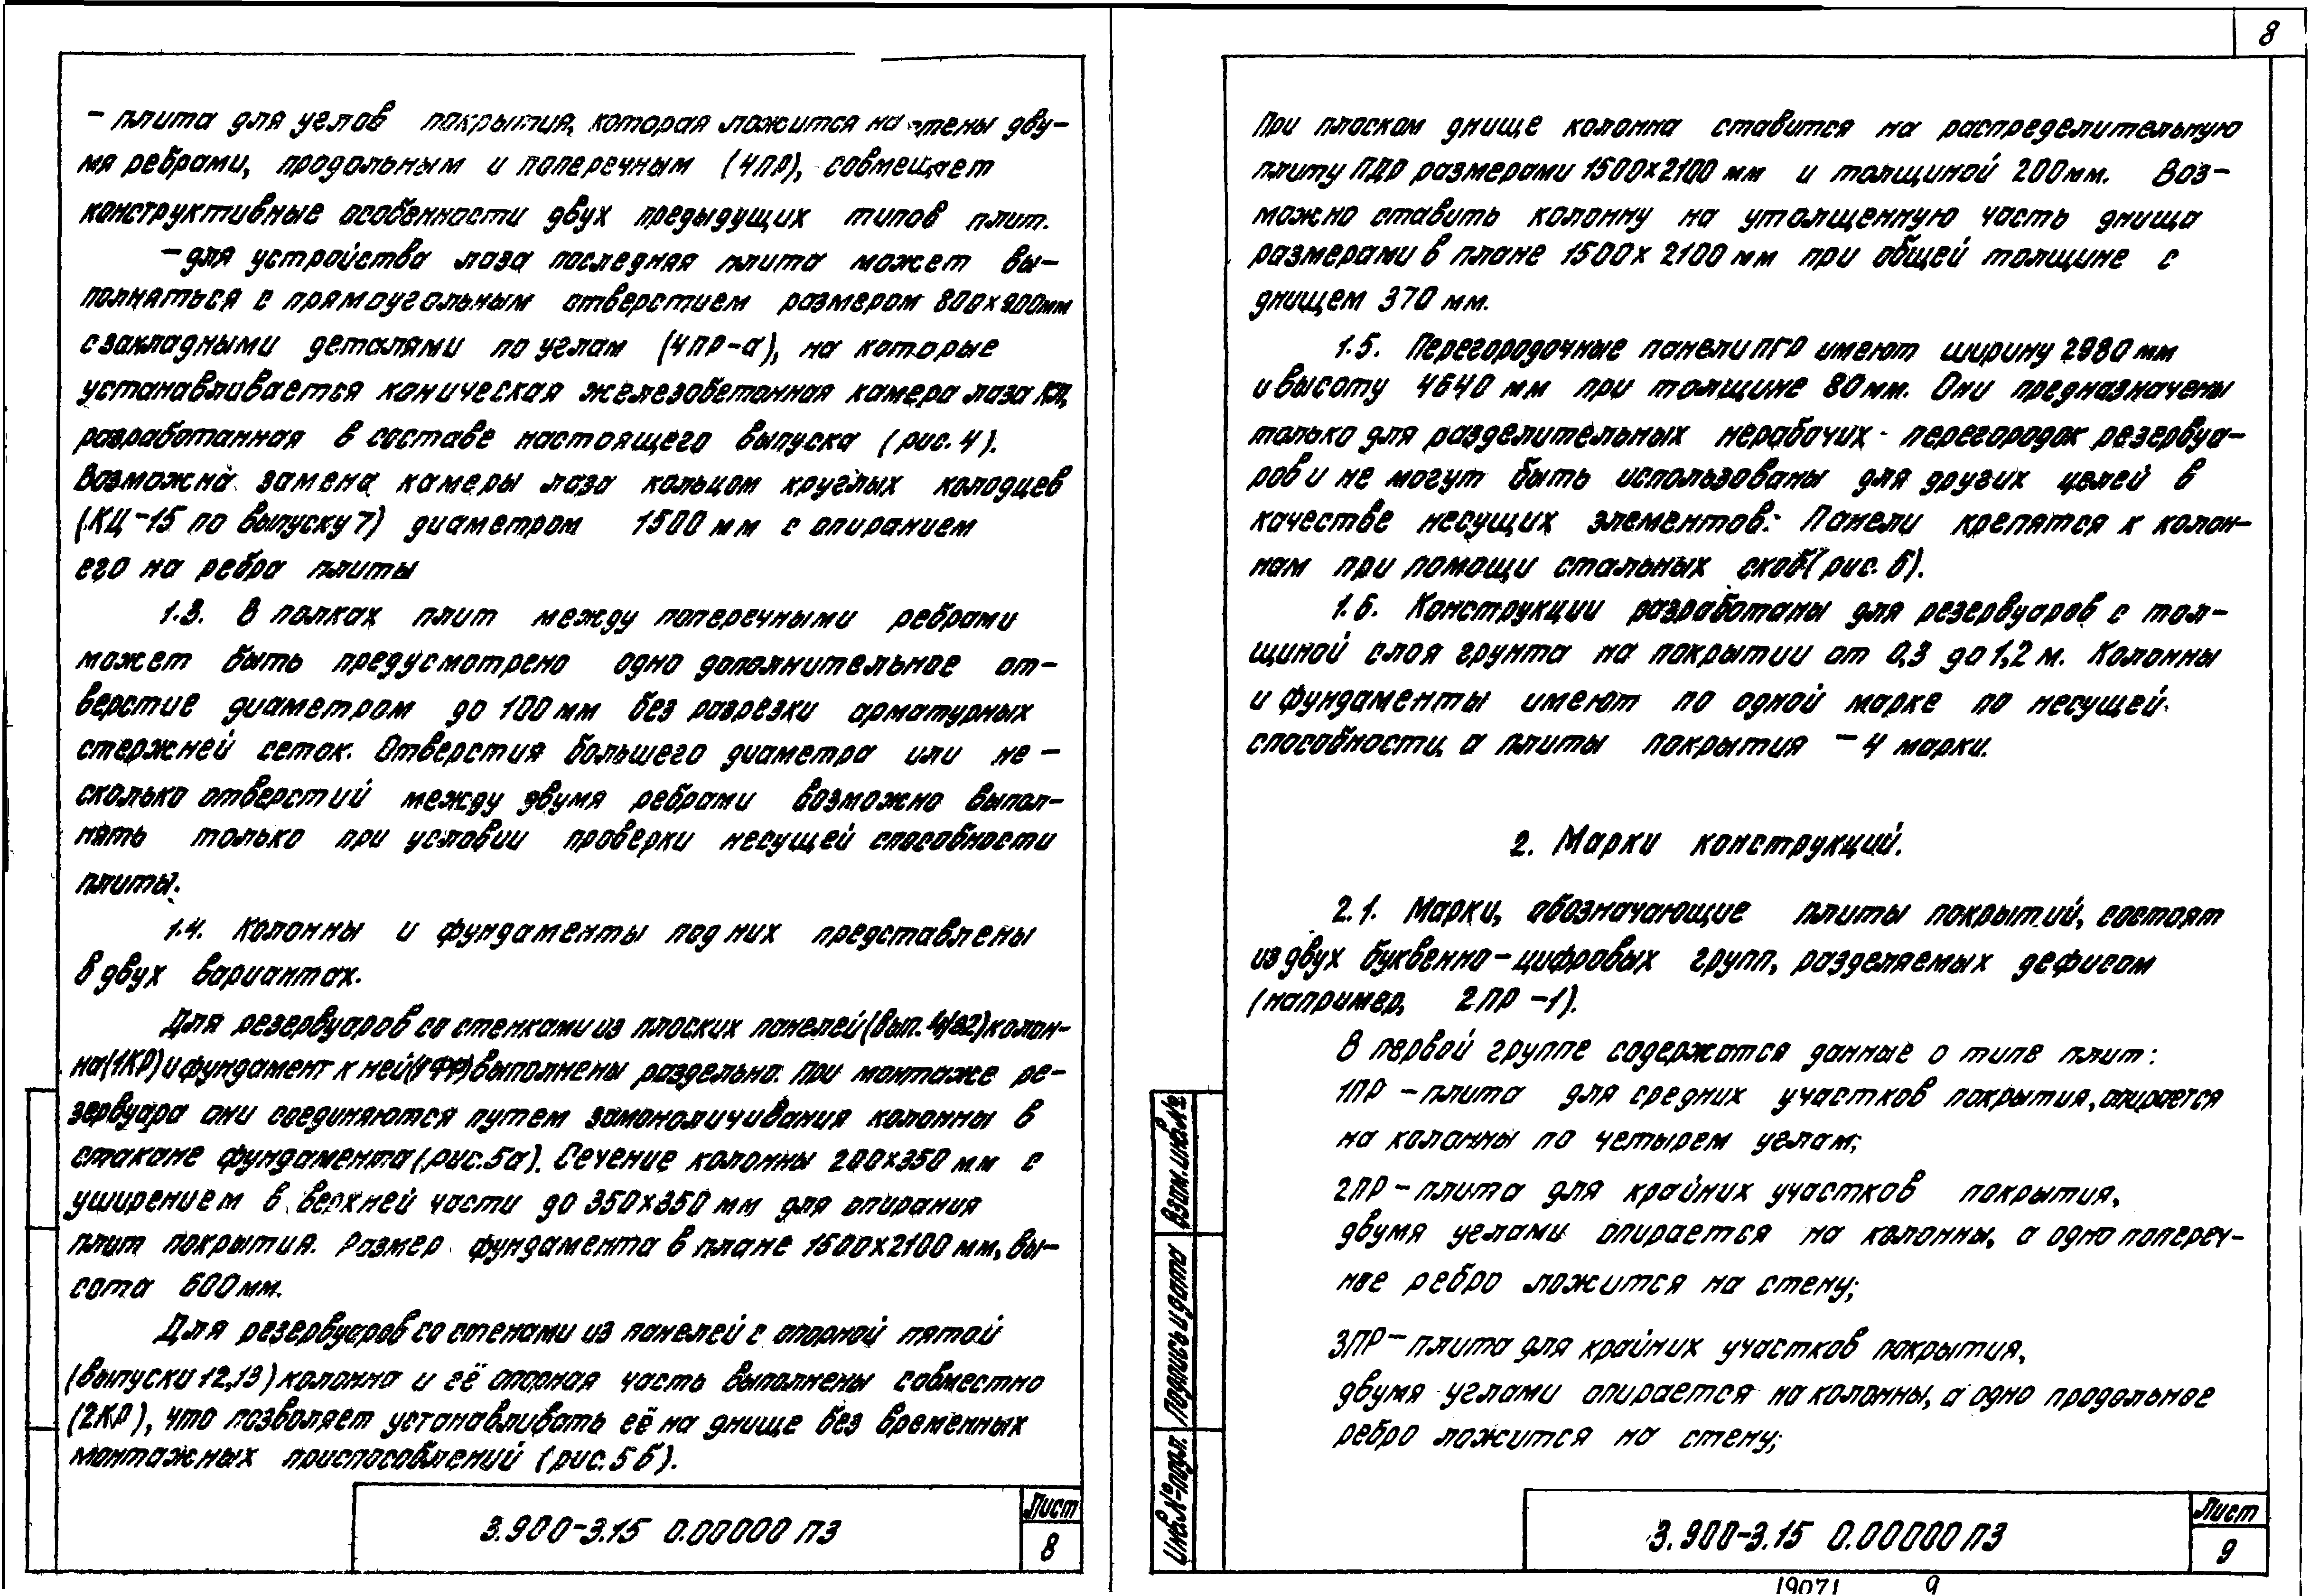 – плита для углов покрытия, которая ложится на стены дву-
мя ребрами, продольным и поперечным (4ПР), совмещает
конструктивные особенности двух предыдущих типов плит.
– для устройства лаза последняя плита может вы-
полняться с прямоугольным отверстием размером 800х900мм
с закладными деталями по углам (4ПР-а), на которые
устанавливается коническая железобетонная камера лаза КЛ,
разработанная в составе настоящего выпуска (рис. 4).
Возможна замена камеры лаза кольцом круглых колодцев
(КЦ-15 по выпуску 7) диаметром 1500 мм с опиранием
его на ребра плиты
1.3. В полках плит между поперечными ребрами
может быть предусмотрено одно дополнительное от-
верстие диаметром до 100 мм без разрезки арматурных
стержней сеток. Отверстия большего диаметра или не-
сколько отверстий между двумя ребрами возможно выпол-
нять только при условии проверки несущей способности
плиты.
1.4. Колонны и фундаменты под них представлены
в двух вариантах.
Для резервуаров со стенками из плоских панелей (вып. 4/82) колон-
на (1КР) и фундамент к ней (1ФР) выполнены раздельно. При монтаже ре-
зервуара они соединяются путем замоноличивания колонны в
стакане фундамента (рис. 5а). Сечение колонны 200х350 мм с
уширением в верхней части до 350х350 мм для опирания
плит покрытия. Размер фундамента в плане 1500х2100 мм, вы-
сота 600 мм.
Для резервуаров со стенами из панелей с опорной пятой
(выпуски 12,13) колонна и её опорная часть выполнены совместно
(2КР), что позволяет устанавливать её на днище без временных
монтажных приспособлений (рис. 5б).
3.900-3.15 0.00000 ПЗ
Лист
8
8
При плоском днище колонна ставится на распределительную
плиту ПДР размерами 1500х2100 мм и толщиной 200мм. Воз-
можно ставить колонну на утолщенную часть днища
размерами в плане 1500х2100 мм при общей толщине с
днищем 370 мм.
1.5. Перегородочные панели ПГР имеют ширину 2980 мм
и высоту 4640 мм при толщине 80 мм. Они предназначены
только для разделительных нерабочих перегородок резервуа-
ров и не могут быть использованы для других целей в
качестве несущих элементов. Панели крепятся к колон-
нам при помощи стальных скоб (рис. 6).
1.6. Конструкции разработаны для резервуаров с тол-
щиной слоя грунта на покрытии от 0,3 до 1,2 м. Колонны
и фундаменты имеют по одной марке по несущей
способности, а плиты покрытия – 4 марки.
2. Марки конструкций.
2.1. Марки, обозначающие плиты покрытий, состоят
из двух буквенно-цифровых групп, разделяемых дефисом
(например, 2ПР-1).
В первой группе содержатся данные о типе плит:
1ПР – плита для средних участков покрытия, опирается
на колонны по четырем углам;
2ПР – плита для крайних участков покрытия,
двумя углами опирается на колонны, а одно попереч-
ное ребро ложится на стену;
3ПР – плита для крайних участков покрытия,
двумя углами опирается на колонны, а одно продольное
ребро ложится на стену;
Взам. инв.№
Подпись и дата
Инв.№ подл.
3.900-3.15 0.00000 ПЗ
Лист
9
19071 9